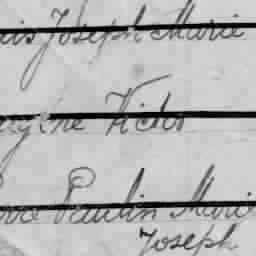 uis Joseph Marie
ugène Victor
Paulin Marie
Joseph